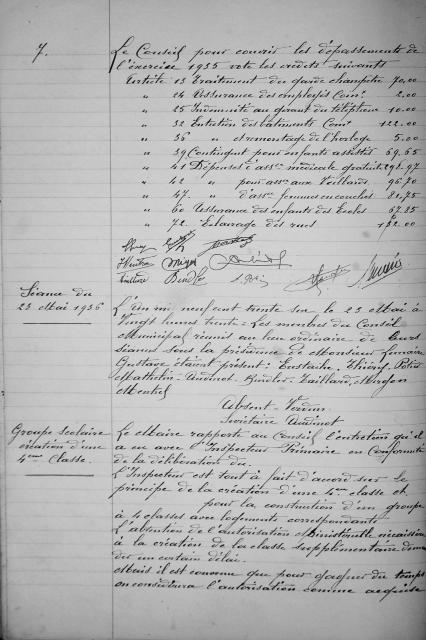 7. Le Conseil pour couvrir les dépassements de
l'exercice 1935 vote les crédits suivants
Article 13 Traitement du garde champêtre 70,00
" 24 Assurance des employés Com. 2.00
" 25 Indemnité au gérant du téléphone 10.00
" 32 Entretien des bâtiments Com. 122.00
" 36 " et remontage de l'horloge 5.00
" 39 Contingent pour enfants assistés 69,65
" 41 Dépenses d'ass. médicale gratuite 298.97
" 42 " pour ass. aux Vieillards 96.70
" 47. " d'ass. femmes en couches 81,75
" 60 Assurance des enfants des Ecoles 67.85
" 72. Eclairage des rues 152.00
Séance du
23 Mai 1936
L'an mil neuf cent trente six le 23 Mai à
Vingt heures trente - Les membres du Conseil
Municipal réunis au lieu ordinaire de leurs
séances sous la présidence de Monsieur Lemaire
Gustave étaient présent: Eustache, Thiery, Petit
Mathelin - Audinot - Rindler - Taillard,
Absent - Verdun
Secrétaire Audinot
Groupe scolaire
création d'une
4ème Classe.
Le Maire rapporte au Conseil l'entretien qu'il
a eu avec l'Inspecteur Primaire en Conformité
de la délibération du
L'Inspecteur est tout à fait d'accord sur le
principe de la création d'une 4ème classe et
pour la construction d'un groupe
à 4 classes avec logements correspondants
L'obtention de l'autorisation Ministérielle nécessaire
à la création de la classe supplémentaire deman
der un certain délai.
Mais il est convenu que pour gagner du temps
on considérera l'autorisation comme acquise